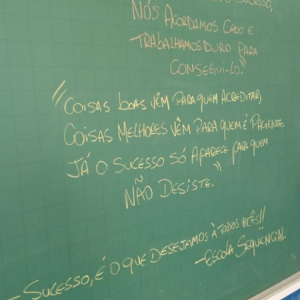 SUCESSO,
NÓS ACORDAMOS CEDO E
TRABALHAMOS DURO PARA
CONSEGUI-LO."
"COISAS BOAS VÊM PARA QUEM ACREDITAR,
COISAS MELHORES VÊM PARA QUEM É PACIENTE,
JÁ O SUCESSO SÓ APARECE PARA QUEM
NÃO DESISTE."
-SUCESSO, É O QUE DESEJAMOS À TODOS VCÊS!!
-ESCOLA SEQUENCIAL